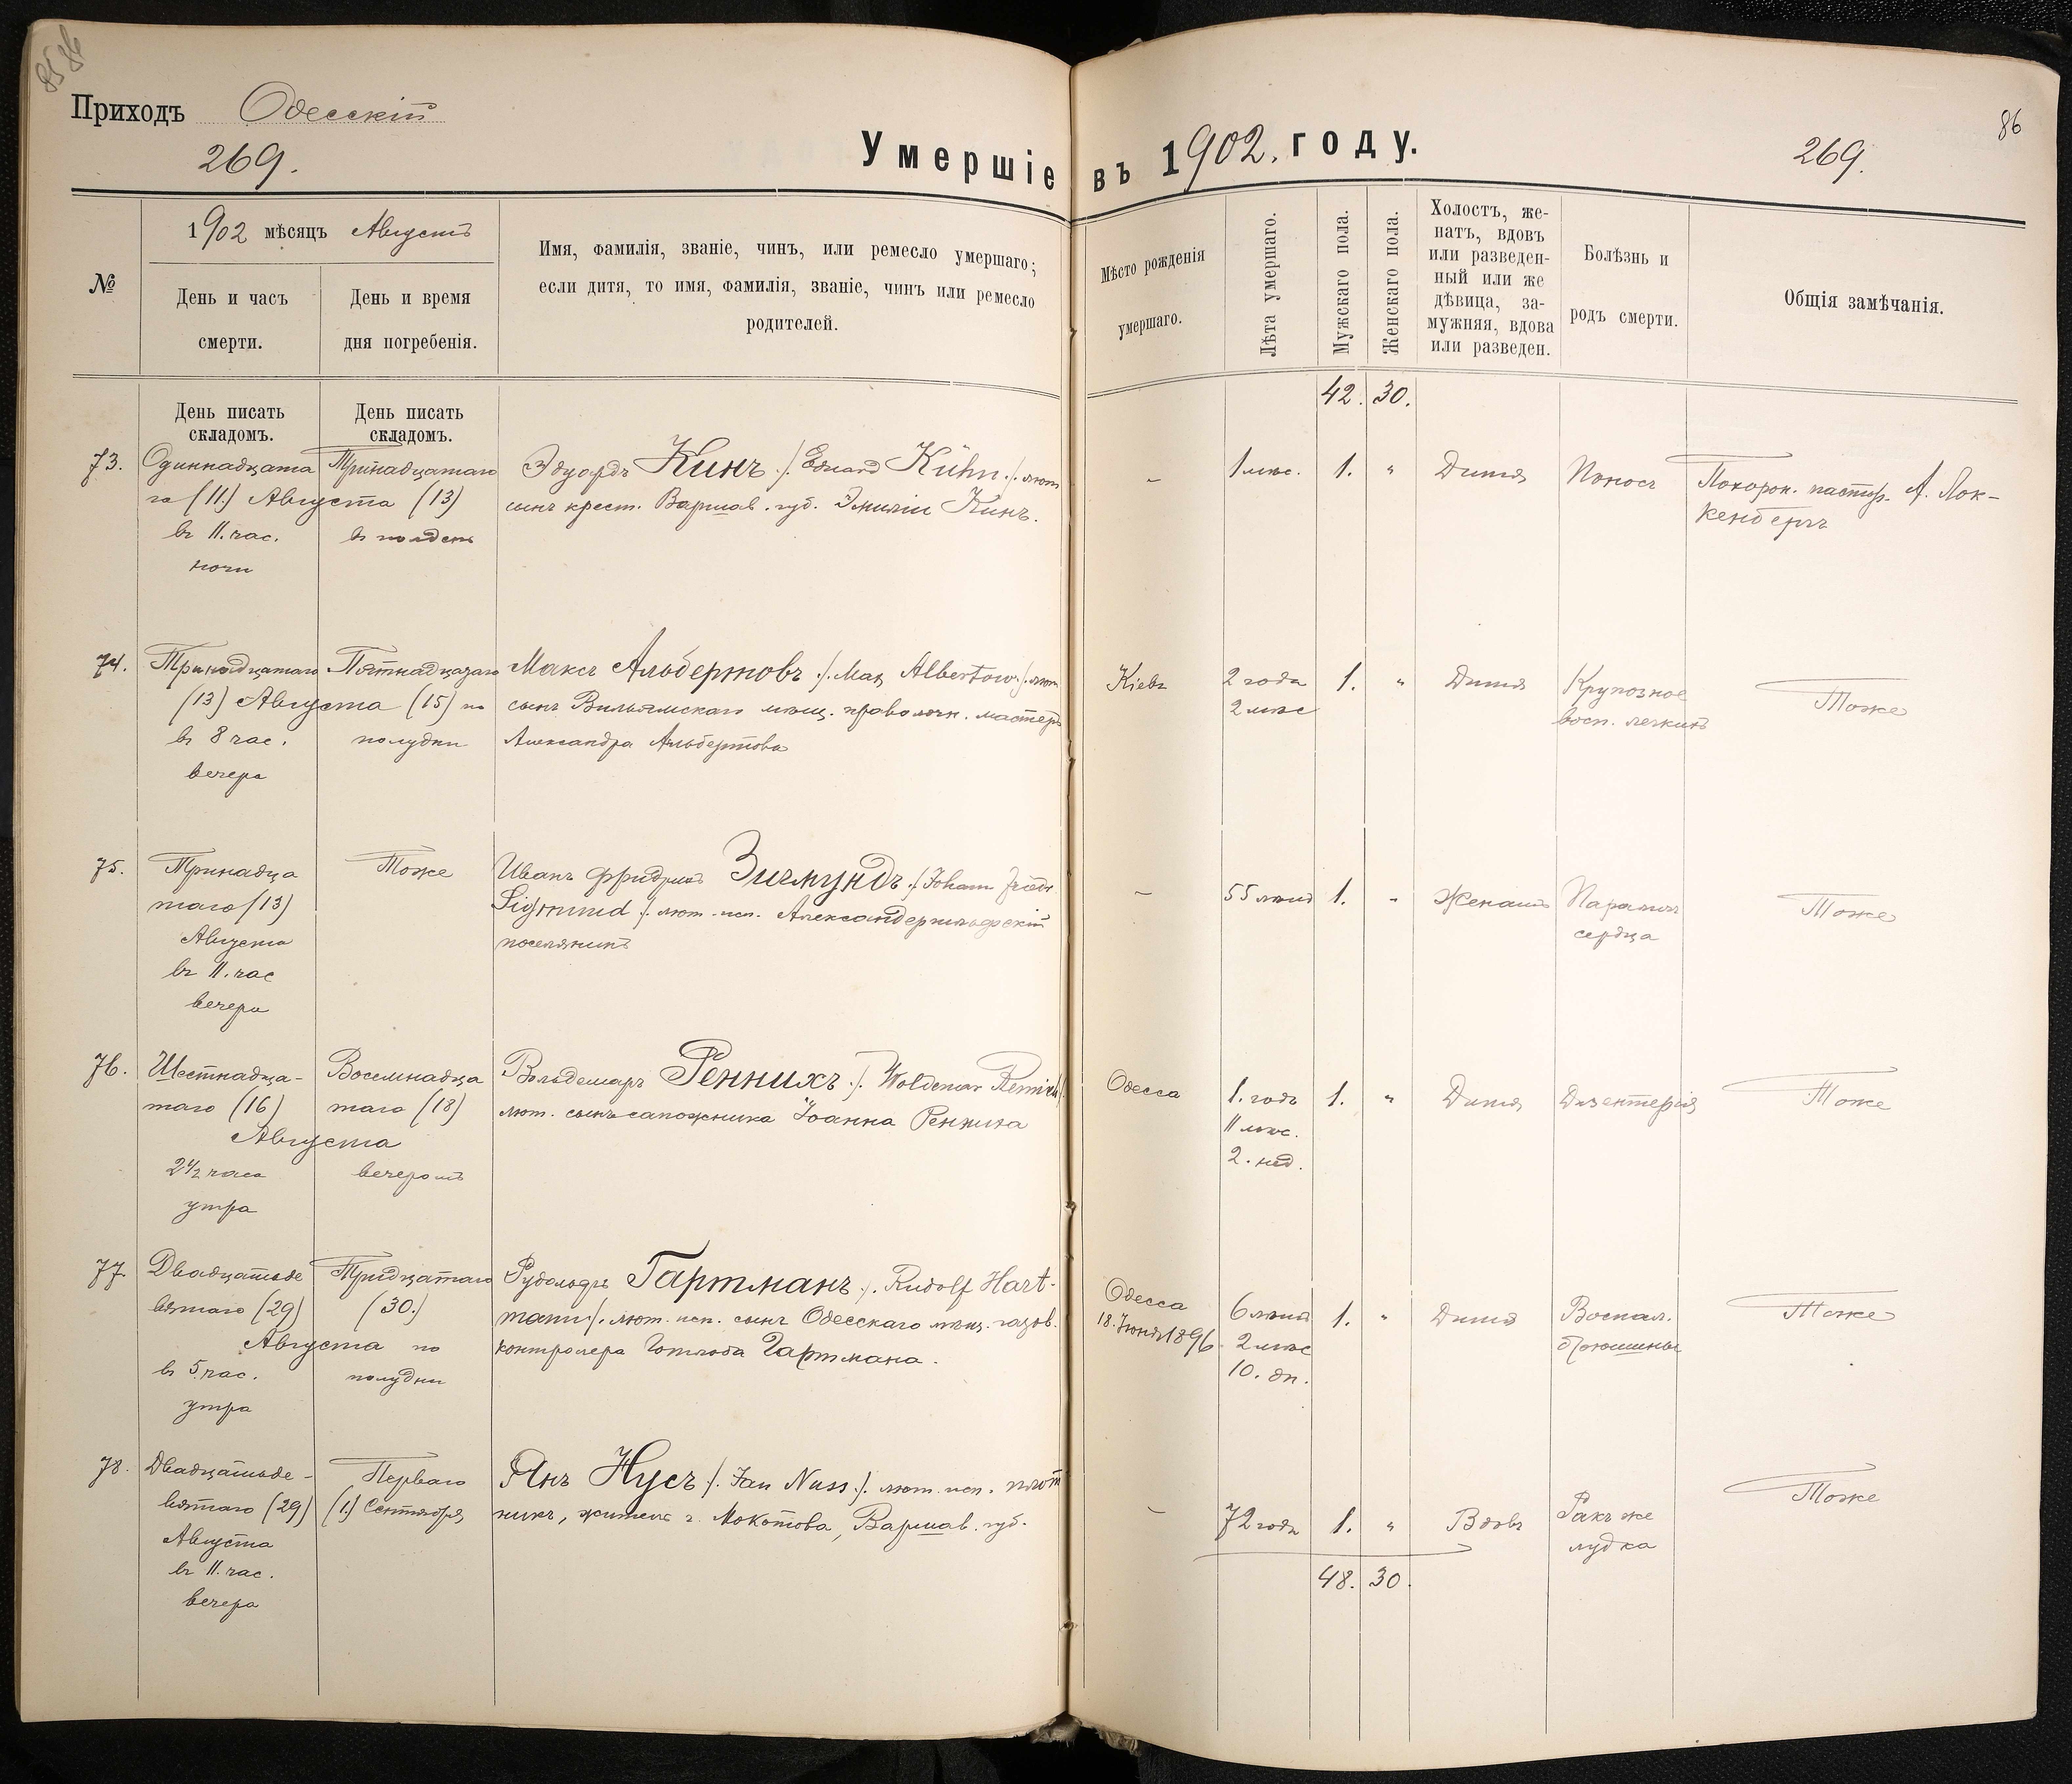 85 86
Приходъ Одесскій
269.
Умершіе въ 1902. году.
269.
86
№
1902 мѣсяцъ Августъ
День и часъ
смерти.
День и время
дня погребенія.
Имя, фамилія, званіе, чинъ, или ремесло умершаго;
если дитя, то имя, фамилія, званіе, чинъ или ремесло
родителей.
Мѣсто рожденія
умершаго.
Лѣта умершаго.
Мужскаго пола.
Женскаго пола.
Холостъ, же-
натъ, вдовъ
или разведен-
ный или же
дѣвица, за-
мужняя, вдова
или разведен.
Болѣзнь и
родъ смерти.
Общія замѣчанія.
День писать
складомъ.
День писать
складомъ.
42. 30.
73.
Одиннадцата
го (11.) Августа (13)
въ 11. час.
ночи
Тринадцатаго
въ полдень
Эдуардъ Кинъ ./. Eduard Kühn ./. лют
сынъ крест. Варшав. губ. Эмиліи Кинъ.
–
1 мѣс.
1.
"
Дитя
Поносъ
Похорон. пастор. А. Лок-
кенбергъ
74.
Тринадцатаго
(13) Августа (15) по
въ 8 час.
вечера
Пятнадцатаго
полудни
Максъ Альбертовъ ./. Max Albertow ./. лют
сынъ мѣщ. проволочн. мастера
Александра Альбертова
Кіевъ
2 года
2 мѣс
1.
"
Дитя
Крупозное
восп. легкихъ
Тоже
75.
Тринадца
таго (13)
Августа
въ 11. час
вечера
Тоже
Иванъ Фридрихъ Зигмундъ ./. Johann Friedr
Sigmund ./. лют. исп. Александергильфскій
поселянинъ
–
55 лѣтъ
1.
"
Женатъ
Параличъ
сердца
Тоже
76.
Шестнадца-
таго (16)
Августа
2 1/2 часа
утра
Восемнадца
таго (18)
вечеромъ
Вольдемаръ Реннихъ ./. Woldemar Rennich ./.
лют. сынъ сапожника Іоанна Ренниха
Одесса
1. годъ
11 мѣс.
2. нед.
1.
"
Дитя
Дизентерія
Тоже
77.
Двадцатьде
вятаго (29)
Августа по
въ 5 час.
утра
Тридцатаго
(30.)
полудни
Рудольфъ Гартманъ ./. Rudolf Hart-
mann ./. лют. исп. сынъ Одесскаго мѣщ. газов.
контролера Готлоба Гартмана.
Одесса
18. Іюня 1896.
6 лѣтъ
2 мѣс
10. дн.
1.
"
Дитя
Воспал.
брюшины
Тоже
78.
Двадцатьде-
вятаго (29)
Августа
въ 11. час.
вечера
Перваго
(1.) Сентября
Янъ Нусъ ./. Jan Nuss ./. лют. исп. плот
никъ, житель г. Мокотова, Варшав. губ.
–
72 года
1.
"
Вдовъ
Ракъ же
лудка
Тоже
48. 30.